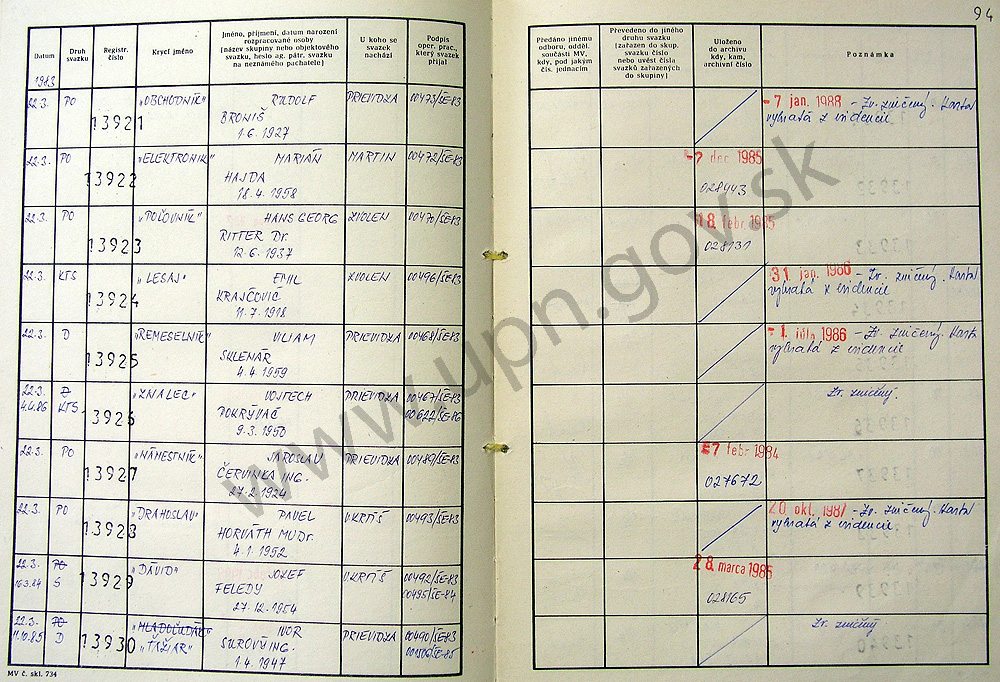 94
Datum
Druh svazku
Registr. číslo
Krycí jméno
Jméno, příjmení, datum narození rozpracované osoby
(název skupiny nebo objektového svazku, heslo ag. pátr. svazku na neznámého pachatele)
U koho se svazek nachází
Podpis oper. prac., který svazek přijal
Předáno jinému odboru, odděl. součásti MV, kdy, pod jakým čís. jednacím
Převedeno do jiného druhu svazku (zařazen do skup. svazku číslo nebo uvést čísla svazků zařazených do skupiny)
Uloženo do archivu kdy, kam, archivní číslo
Poznámka
1983
22.3. PO 13921 "OBCHODNÍK" RUDOLF PRIEVIDZA 00473/ŠE-83
BRONIŠ
1.6.1927
- 7 jan. 1988 - Zv. zničený. Karta
vybratá z evidencie
22.3. PO 13922 "ELEKTRONIK" MARIÁN MARTIN 00472/ŠE-83
HAJDA
18.4.1958
- 7 dec 1985
028443
22.3. PO 13923 "POĽOVNÍK" HANS GEORG ZVOLEN 00470/ŠE-83
RITTER Dr.
12.6.1937
18 febr 1985
028131
22.3. KTS 13924 "LESAJ" EMIL ZVOLEN 00496/ŠE-83
KRAJČOVIC
11.7.1918
31 jan. 1986 - Zv. zničený. Karta
vybratá z evidencie
22.3. D 13925 "REMESELNÍK" VILIAM PRIEVIDZA 00468/ŠE-83
SKLENÁR
4.4.1959
- 1. júla 1986 - Zv. zničený. Karta
vybratá z evidencie
22.3. D 13926 "ZNALEC" VOJTECH PRIEVIDZA 00467/ŠE-83
4.4.86 KTS POKRÝVAČ 00622/ŠE-86
9.3.1950
Zv. zničený.
22.3. PO 13927 "NÁMESTNÍK" JAROSLAV PRIEVIDZA 00489/ŠE-83
ČERVINKA ING.
27.2.1924
27 febr 1984
027672
22.3. PO 13928 "DRAHOSLAV" PAVEL V.KRTÍŠ 00493/ŠE-83
HORVÁTH MUDr.
4.1.1952
20 okt. 1987 - Zv. zničený. Karta
vybratá z evidencie
22.3. PO 13929 "DÁVID" JOZEF V.KRTÍŠ 00492/ŠE-83
16.3.84 S FELEDY 00495/ŠE-84
27.12.1954
28 marca 1985
028165
22.3. PO 13930 IVOR PRIEVIDZA 00490/ŠE-83
11.10.85 D "ŤAŽIAR" SUROVÝ ING. 001506/ŠE-85
1.4.1947
Zv. zničený
MV č. skl. 734
www.upn.gov.sk